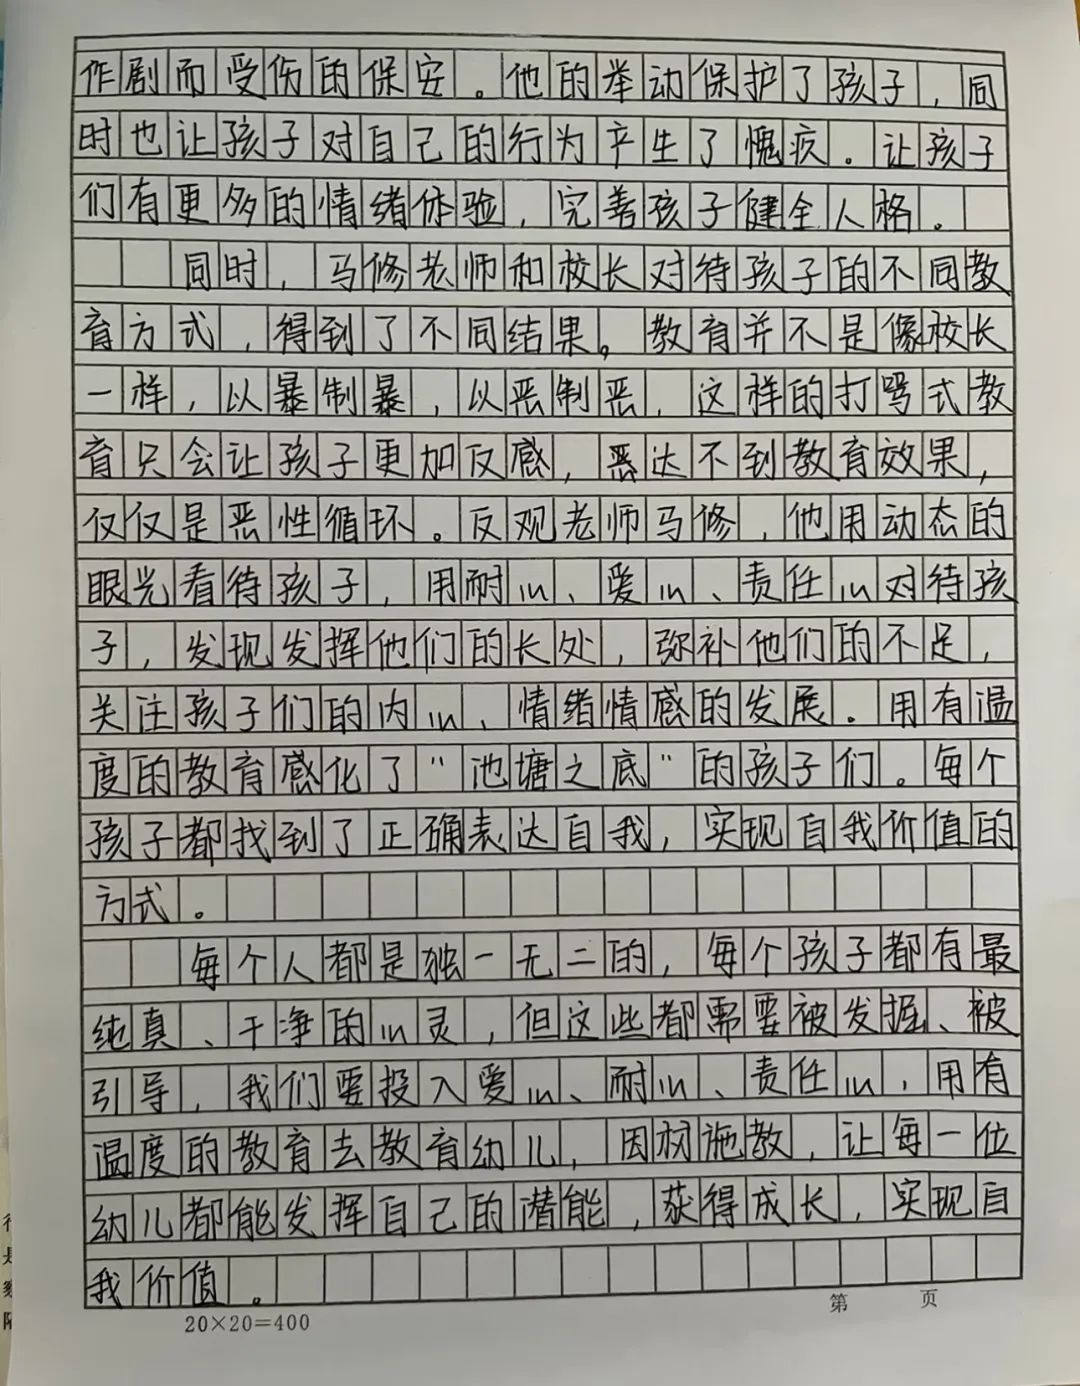 作剧而受伤的保安。他的举动保护了孩子，同
时也让孩子对自己的行为产生了愧疚。让孩子
们有更多的情绪体验，完善孩子健全人格。
同时，马修老师和校长对待孩子的不同教
育方式，得到了不同结果。教育并不是像校长
一样，以暴制暴，以恶制恶，这样的打骂式教
育只会让孩子更加反感，恶达不到教育效果，
仅仅是恶性循环。反观老师马修，他用动态的
眼光看待孩子，用耐心、爱心、责任心对待孩
子，发现发挥他们的长处，弥补他们的不足，
关注孩子们的内心、情绪情感的发展。用有温
度的教育感化了"池塘之底"的孩子们。每个
孩子都找到了正确表达自我，实现自我价值的
方式。
每个人都是独一无二的，每个孩子都有最
纯真、干净的心灵，但这些都需要被发掘、被
引导，我们要投入爱心、耐心、责任心，用有
温度的教育去教育幼儿，因材施教，让每一位
幼儿都能发挥自己的潜能，获得成长，实现自
我价值。
20×20=400
第 页